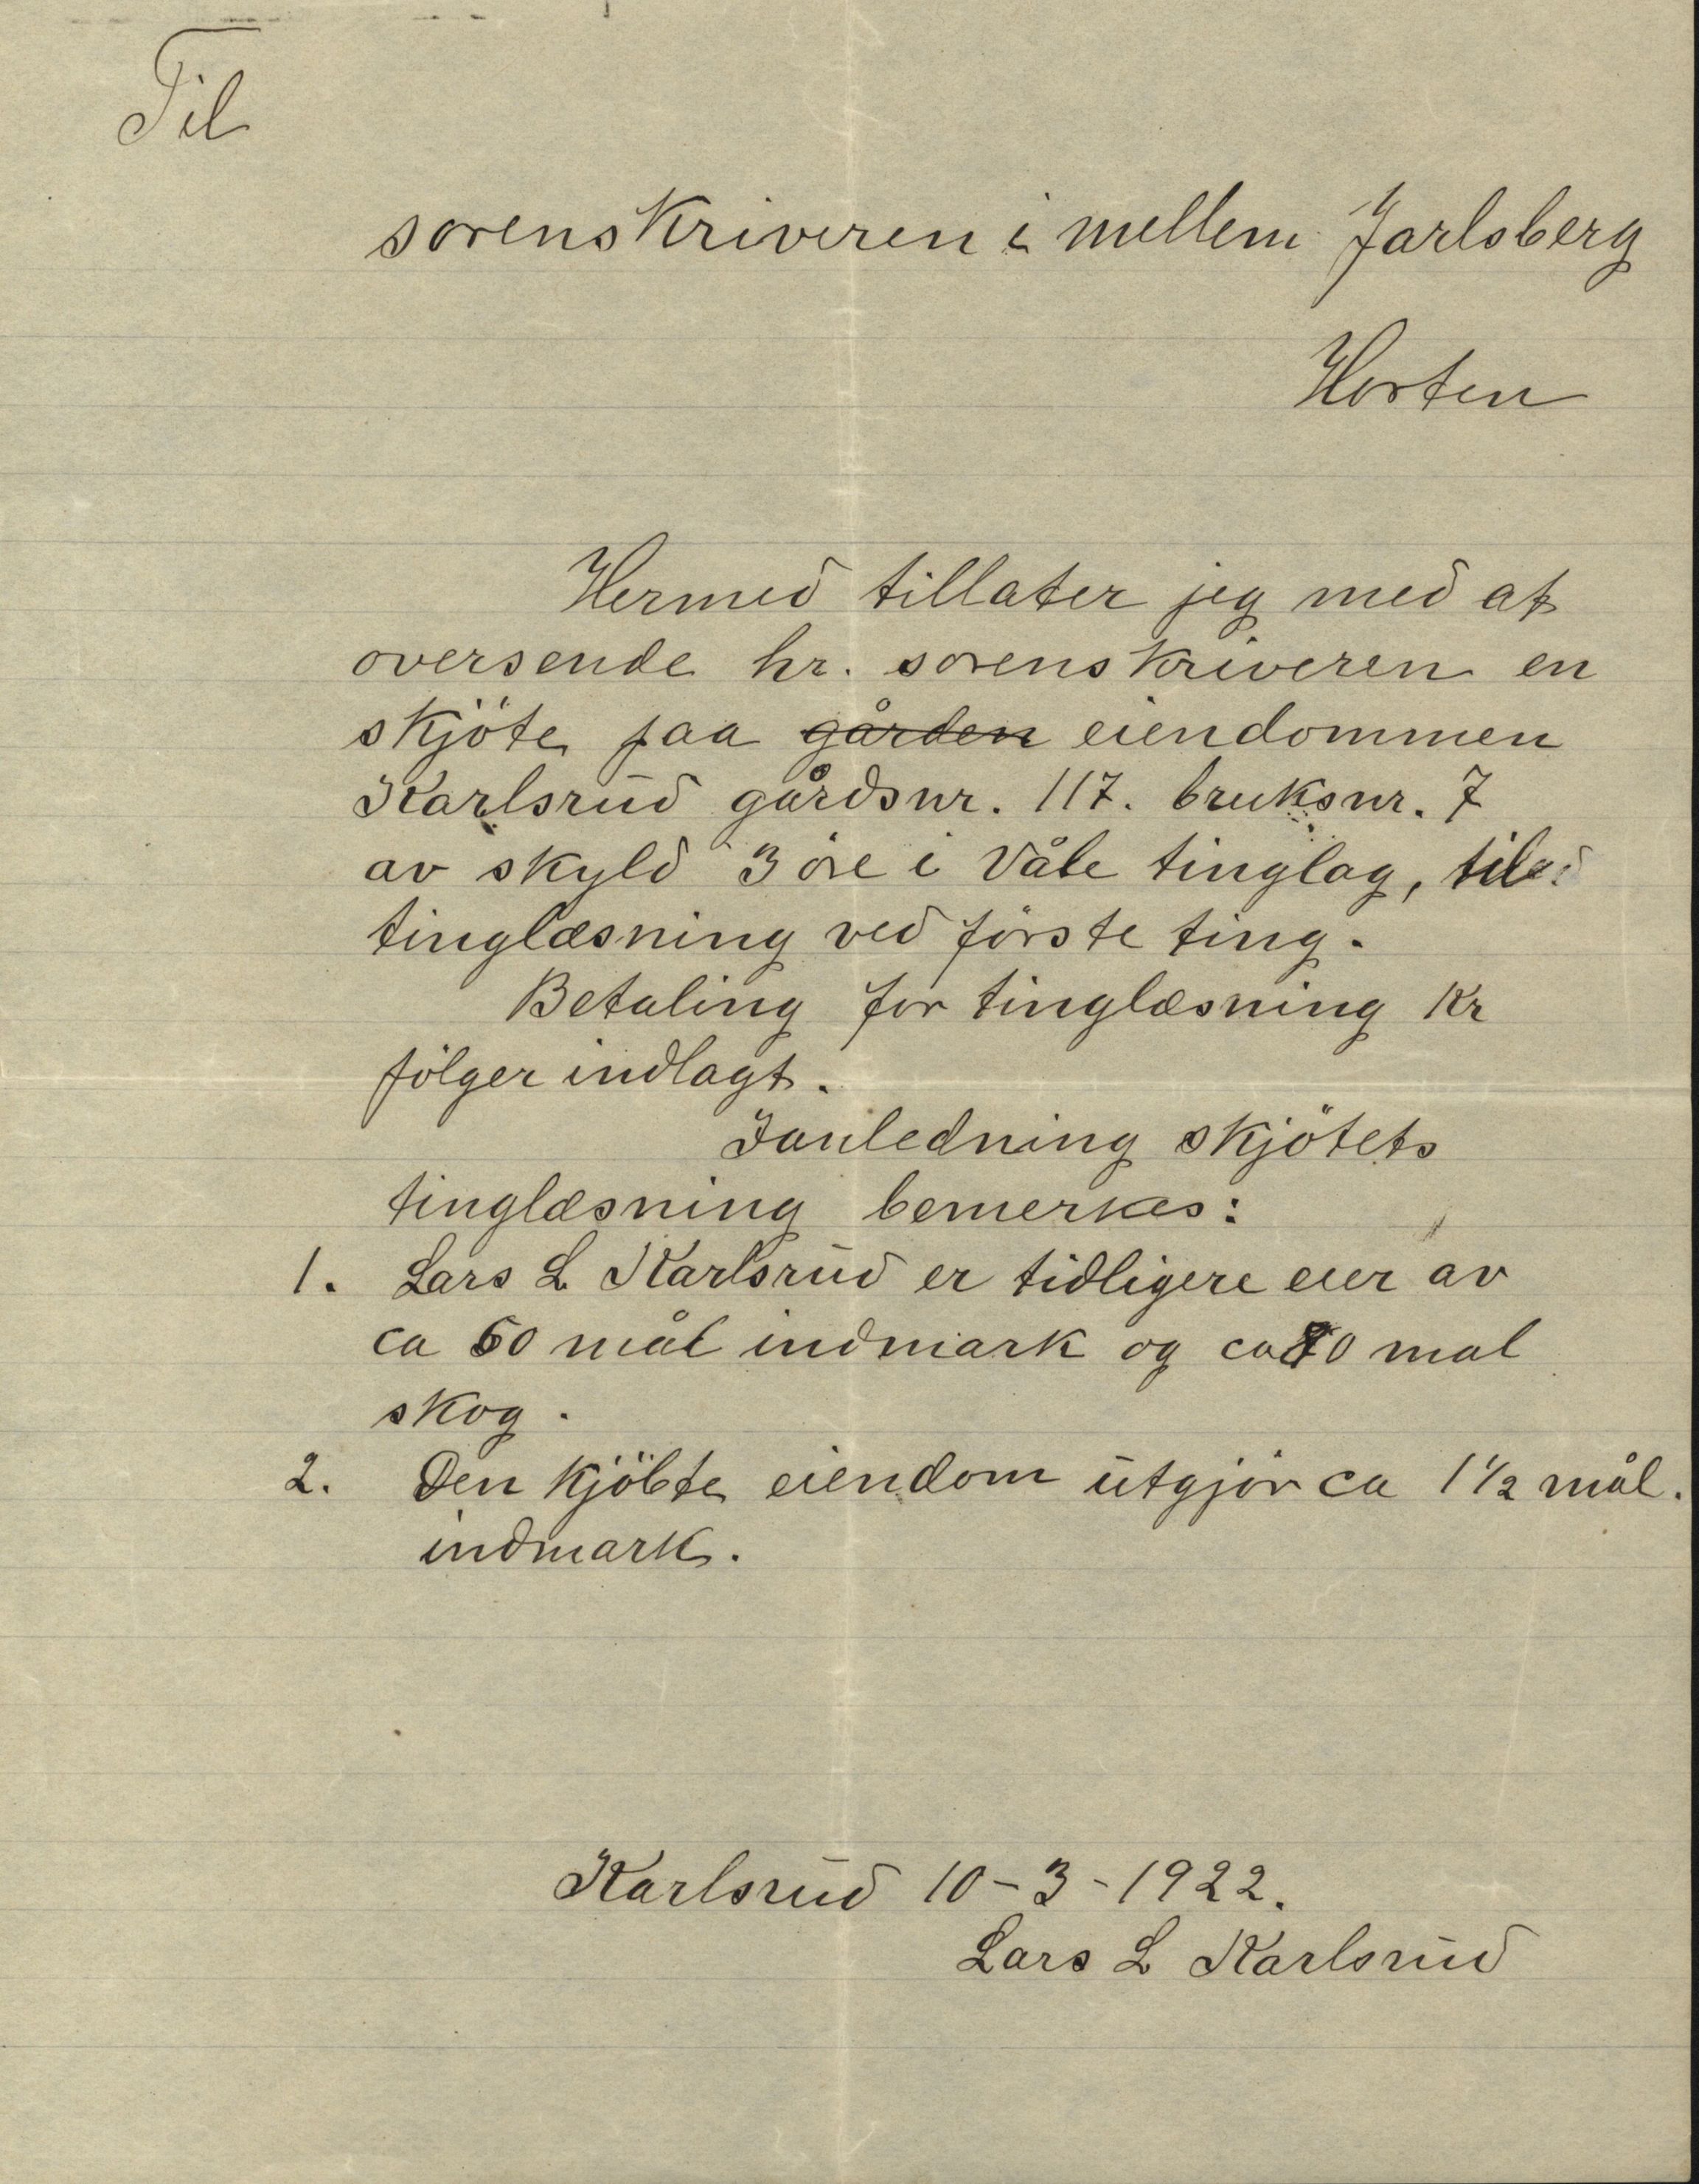 Til
sorenskriveren i mellem Jarlsberg
Horten
Hermed tillater jeg med at
oversende hr. sorenskriveren en
skjöte paa gården eiendommen
Karlsrud gårdsnr. 117. bruksnr. 7
av skyld 3 öre i Våle tinglag, til
tinglæsning ved förste ting.
Betaling for tinglæsning Kr
fölger indlagt.
Ianledning skjötets
tinglæsning bemerkes:
1. Lars L Karlsrud er tidligere eier av
ca 60 mål indmark og ca 70 mal
skog.
2. Den kjöbte eiendom utgjör ca 1 1/2 mål.
indmark.
Karlsrud 10-3-1922.
Lars L Karlsrud